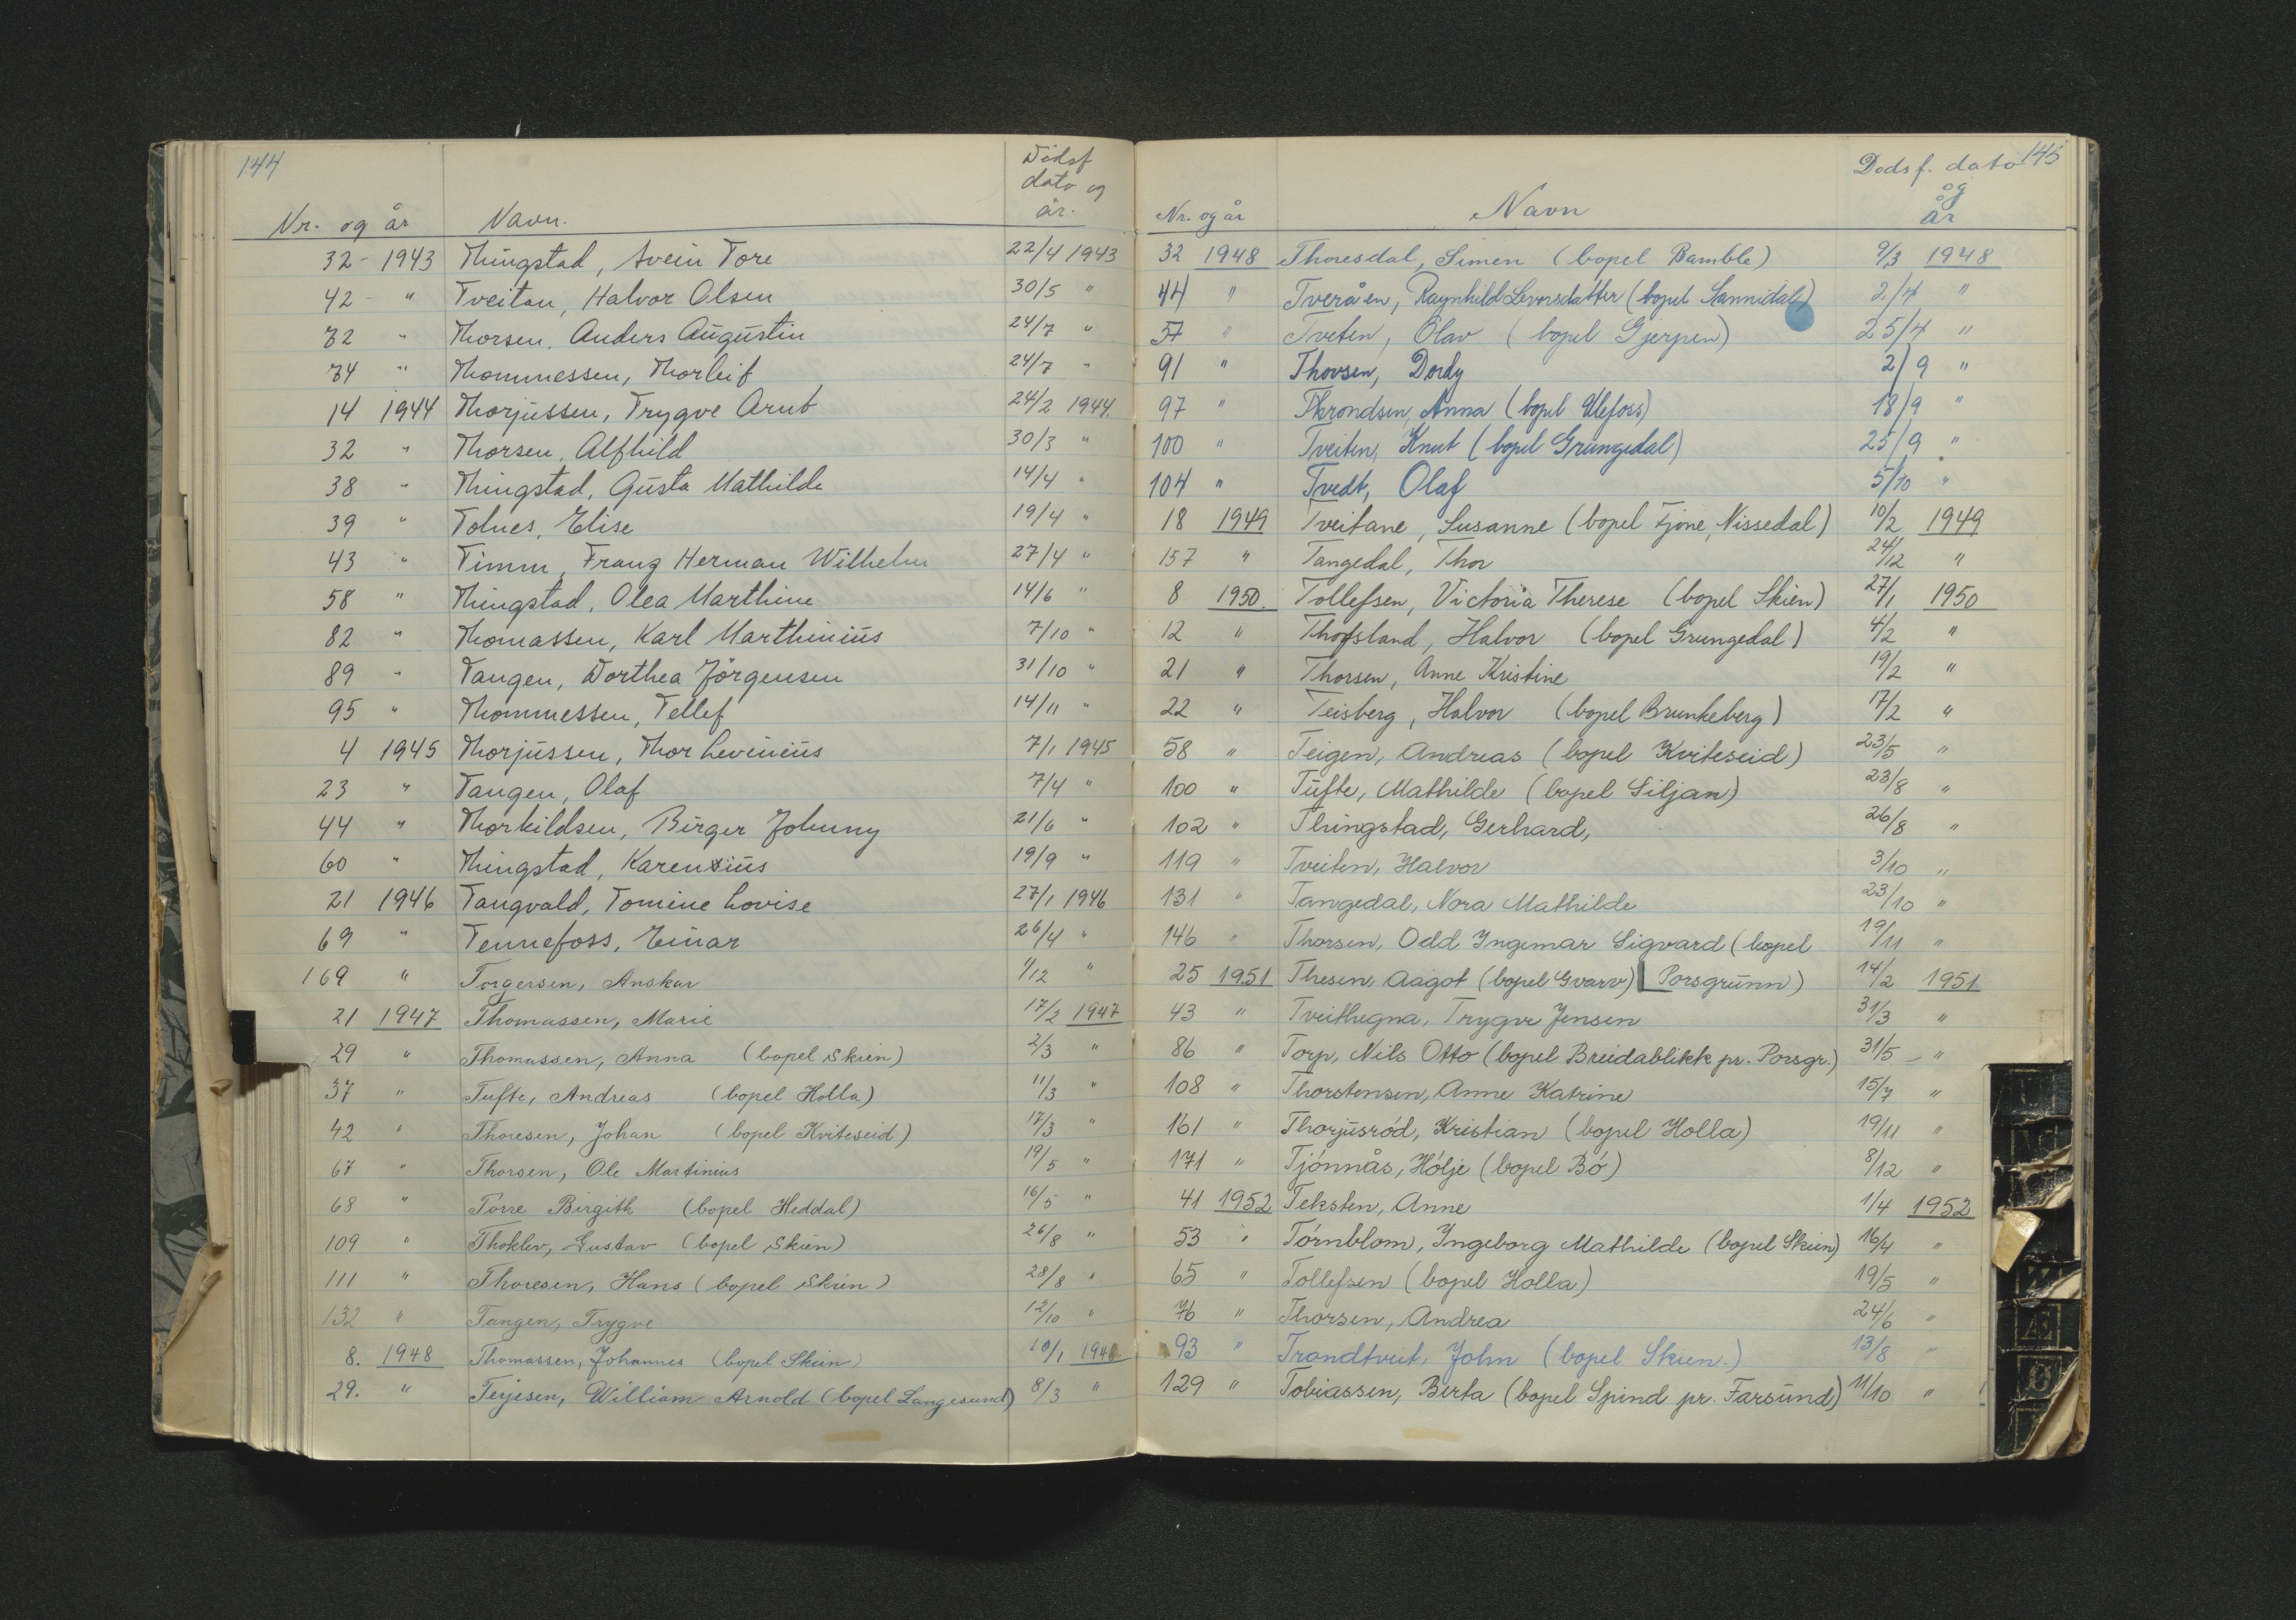 144
Nr. og år Navn. Dödsf dato og år.
32 - 1943 Thingstad, Svein Tore 22/4 1943
42 - " Tveitan, Halvor Olsen 30/5 "
72 " Thorsen, Anders Augustin 24/7 "
74 " Thommessen, Thorleif 24/7 "
14 1944 Thorjussen, Trygve Arnt 24/2 1944.
32 " Thorsen, Alfhild 30/3 "
38 " Thingstad, Gusta Mathilde 14/4 "
39 " Tolnes, Elise 19/4 "
43 " Timm, Franz Herman Wilhelm 27/4 "
58 " Thingstad, Olea Marthine 14/6 "
82 " Thomassen, Karl Marthinius 7/10 "
89 " Tangen, Dorthea Jörgensen 31/10 "
95 " Thommessen, Tellef 14/11 "
4 1945 Thorjussen, Thor Levinius 7/1 1945
23 " Tangen, Olaf 7/4 "
44 " Thorkildsen, Birger Johnny 21/6 "
60 " Thingstad, Karenius 19/9 "
21 1946 Tangvald, Tomine Lovise 27/1 1946
69 " Tennefoss, Einar 26/4 "
169 " Torgersen, Anskar 1/12 "
21 1947 Thomassen, Marie 17/2 1947
29 " Thomassen, Anna (bopel Skien) 2/3 "
37 " Tufte, Andreas (bopel Holla) 11/3 "
42 " Thoresen, Johan (bopel Kviteseid) 17/3 "
67 " Thorsen, Ole Martinius 19/5 "
68 " Torre Birgith (bopel Heddal) 16/5 "
109 " Thoklev, Gustav (bopel Skien) 26/8 "
111 " Thoresen, Hans (bopel Skien) 28/8 "
132 " Tangen, Trygve 12/10 "
8. 1948 Thomassen, Johannes (bopel Skien) 10/1 1948
29. " Terjesen, William Arnold (bopel Langesund) 8/3 "
145
Nr. og år Navn Dodsf. dato og år
32 1948 Thoresdal, Simen (bopel Bamble) 9/3 1948
44 " Tveråen, Ragnhild Levorsdatter (bopel Sannidal) 2/4 "
57 " Tveten, Olav (bopel Gjerpen) 25/4 "
91 " Thovsen, Dordy 2/9 "
97 " Throndsen, Anna (bopel Ulefoss) 18/9 "
100 " Tveiten, Knut (bopel Grungedal) 25/9 "
104 " Tvedt, Olaf 5/10 "
18 1949 Tveitane, Susanne (bopel Fjone, Nissedal) 10/2 1949
157 " Tangedal, Thor 24/12 "
8 1950. Tollefsen, Victoria Therese (bopel Skien) 27/1 1950
12 " Thofsland, Halvor (bopel Grungedal) 4/2 "
21 " Thorsen, Anne Kristine 19/2 "
22 " Teisberg, Halvor (bopel Brunkeberg) 17/2 "
58 " Teigen, Andreas (bopel Kviteseid) 23/5 "
100 " Tufte, Mathilde (bopel Siljan) 23/8 "
102 " Thingstad, Gerhard, 26/8 "
119 " Tveiten, Halvor 3/10 "
131 " Tangedal, Nora Mathilde 23/10 "
146 " Thorsen, Odd Ingemar Sigvard (bopel 19/11 "
25 1951 Thesen, Aagot (bopel Gvarv) Porsgrunn) 14/2 1951
43 " Tveithegna, Trygve Jensen 31/3 "
86 " Torp, Nils Otto (bopel Breidablikk pr. Porsgr.) 31/5 - "
108 " Thorstensen, Anne Katrine 15/7 "
161 " Thorjusröd, Kristian (bopel Holla) 19/11 "
171 " Tjönnås, Hölje (bopel Bö) 8/12 "
41 1952 Teksten, Anne 1/4 1952
53 " Törnblom, Ingeborg Mathilde (bopel Skien) 16/4 "
65 " Tollefsen (bopel Holla) 19/5 "
76 " Thorsen, Andrea 24/6 "
93 " Trondtveit, John (bopel Skien.) 13/8 "
129 " Tobiassen, Berta (bopel Spind pr. Farsund) 11/10 "
Æ
Ø